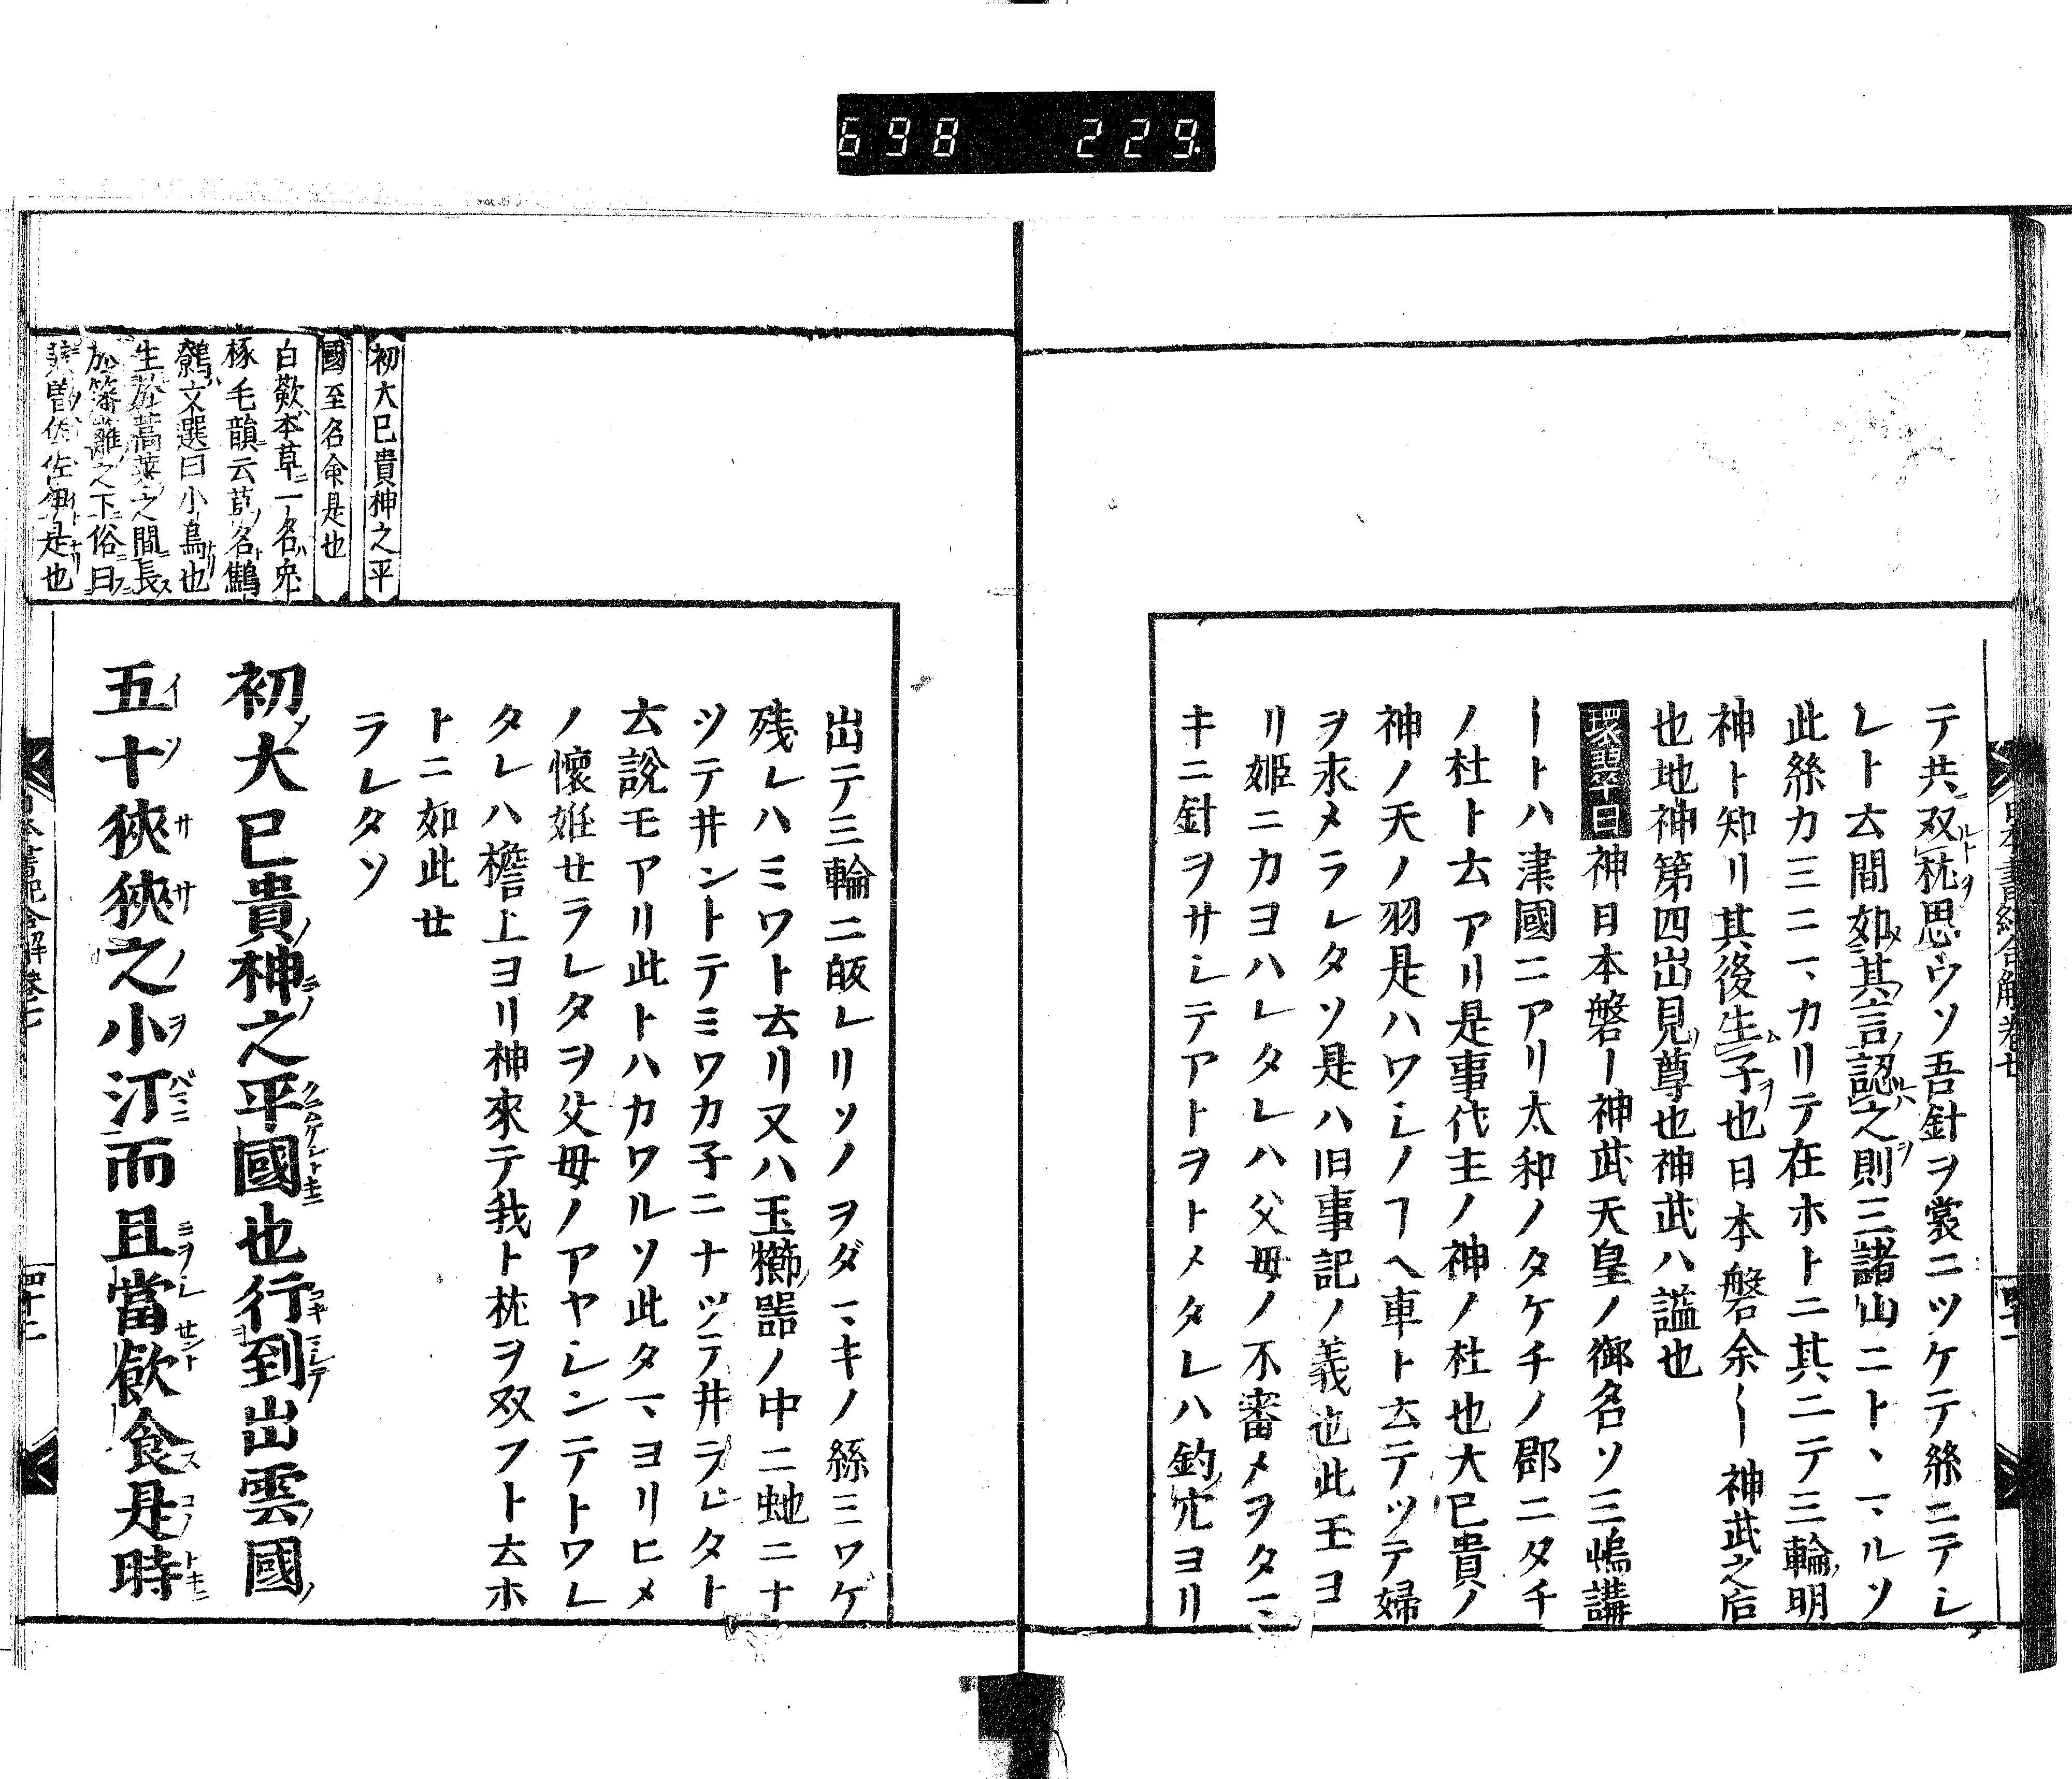 698 229
テ共双枕思ウソ吾針ヲ裳ニツケテ絲ニテシ
レト云間如其言認之則三諸山ニトヽマルソ
此絲カ三ニマカリテ在ホトニ其ニテ三輪明
神ト知リ其後生子也日本磐余ー神武之后
也地神第四出見尊也神武ハ謚也
環翠曰神日本磐ー神武天皇ノ御名ソ三嶋講
ートハ津國ニアリ太和ノタケチノ郡ニタチ
ノ社ト云アリ是事代主ノ神ノ社也大已貴ノ
神ノ天ノ羽是ハワシノヿヘ車ト云テツテ婦
ヲ求メラレタソ是ハ旧事記ノ義也此王ヨ
リ姫ニカヨハレタレハ父母ノ不審メヲタマ
キニ針ヲサシテアトヲトメタレハ釣穴ヨリ
出テ三輪ニ皈レリソノヲダマキノ絲三ワゲ
残レハミワト云リ又ハ玉櫛笥ノ中ニ虵ニナ
ツテ井ントテミワカ子ニナツテ井ラレタト
云說モアリ此トハカワルソ此タマヨリヒメ
ノ懷姙せラレタヲ父母ノアヤシンテトワレ
タレハ檐上ヨリ神來テ我ト枕ヲ双フト云ホ
トニ如此せ
ラレタソ
初大已貴神之平
國至名命是也
白歛本草一名兔
核毛韻云草名鷦
鷯文選曰小鳥也
生於蒿萊之間長
於籓籬之下俗曰
佐伊是也
初大已貴神之平國也行到出雲國
五十狹狹之小汀而且當飲食是時
日本書紀合解卷七
四十二